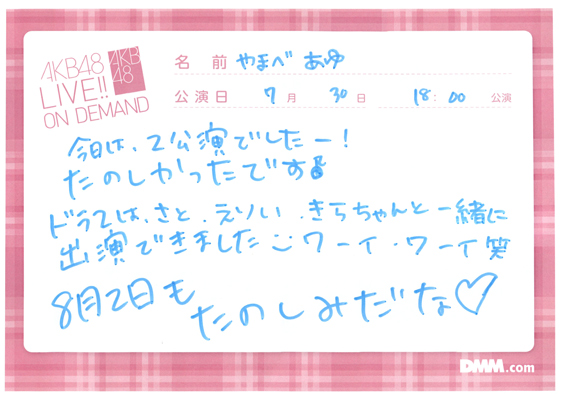 AKB48
LIVE!!
ON DEMAND
AKB
48
名 前 やまべ あゆ
公演日 7月 30日 18:00 公演
今日は、2公演でしたー!
たのしかったです
ドラフは、さと、えりい、きらちゃんと一緒に
出演できました ワーイ・ワーイ笑
8月2日も
たのしみだな♡
DMM.com